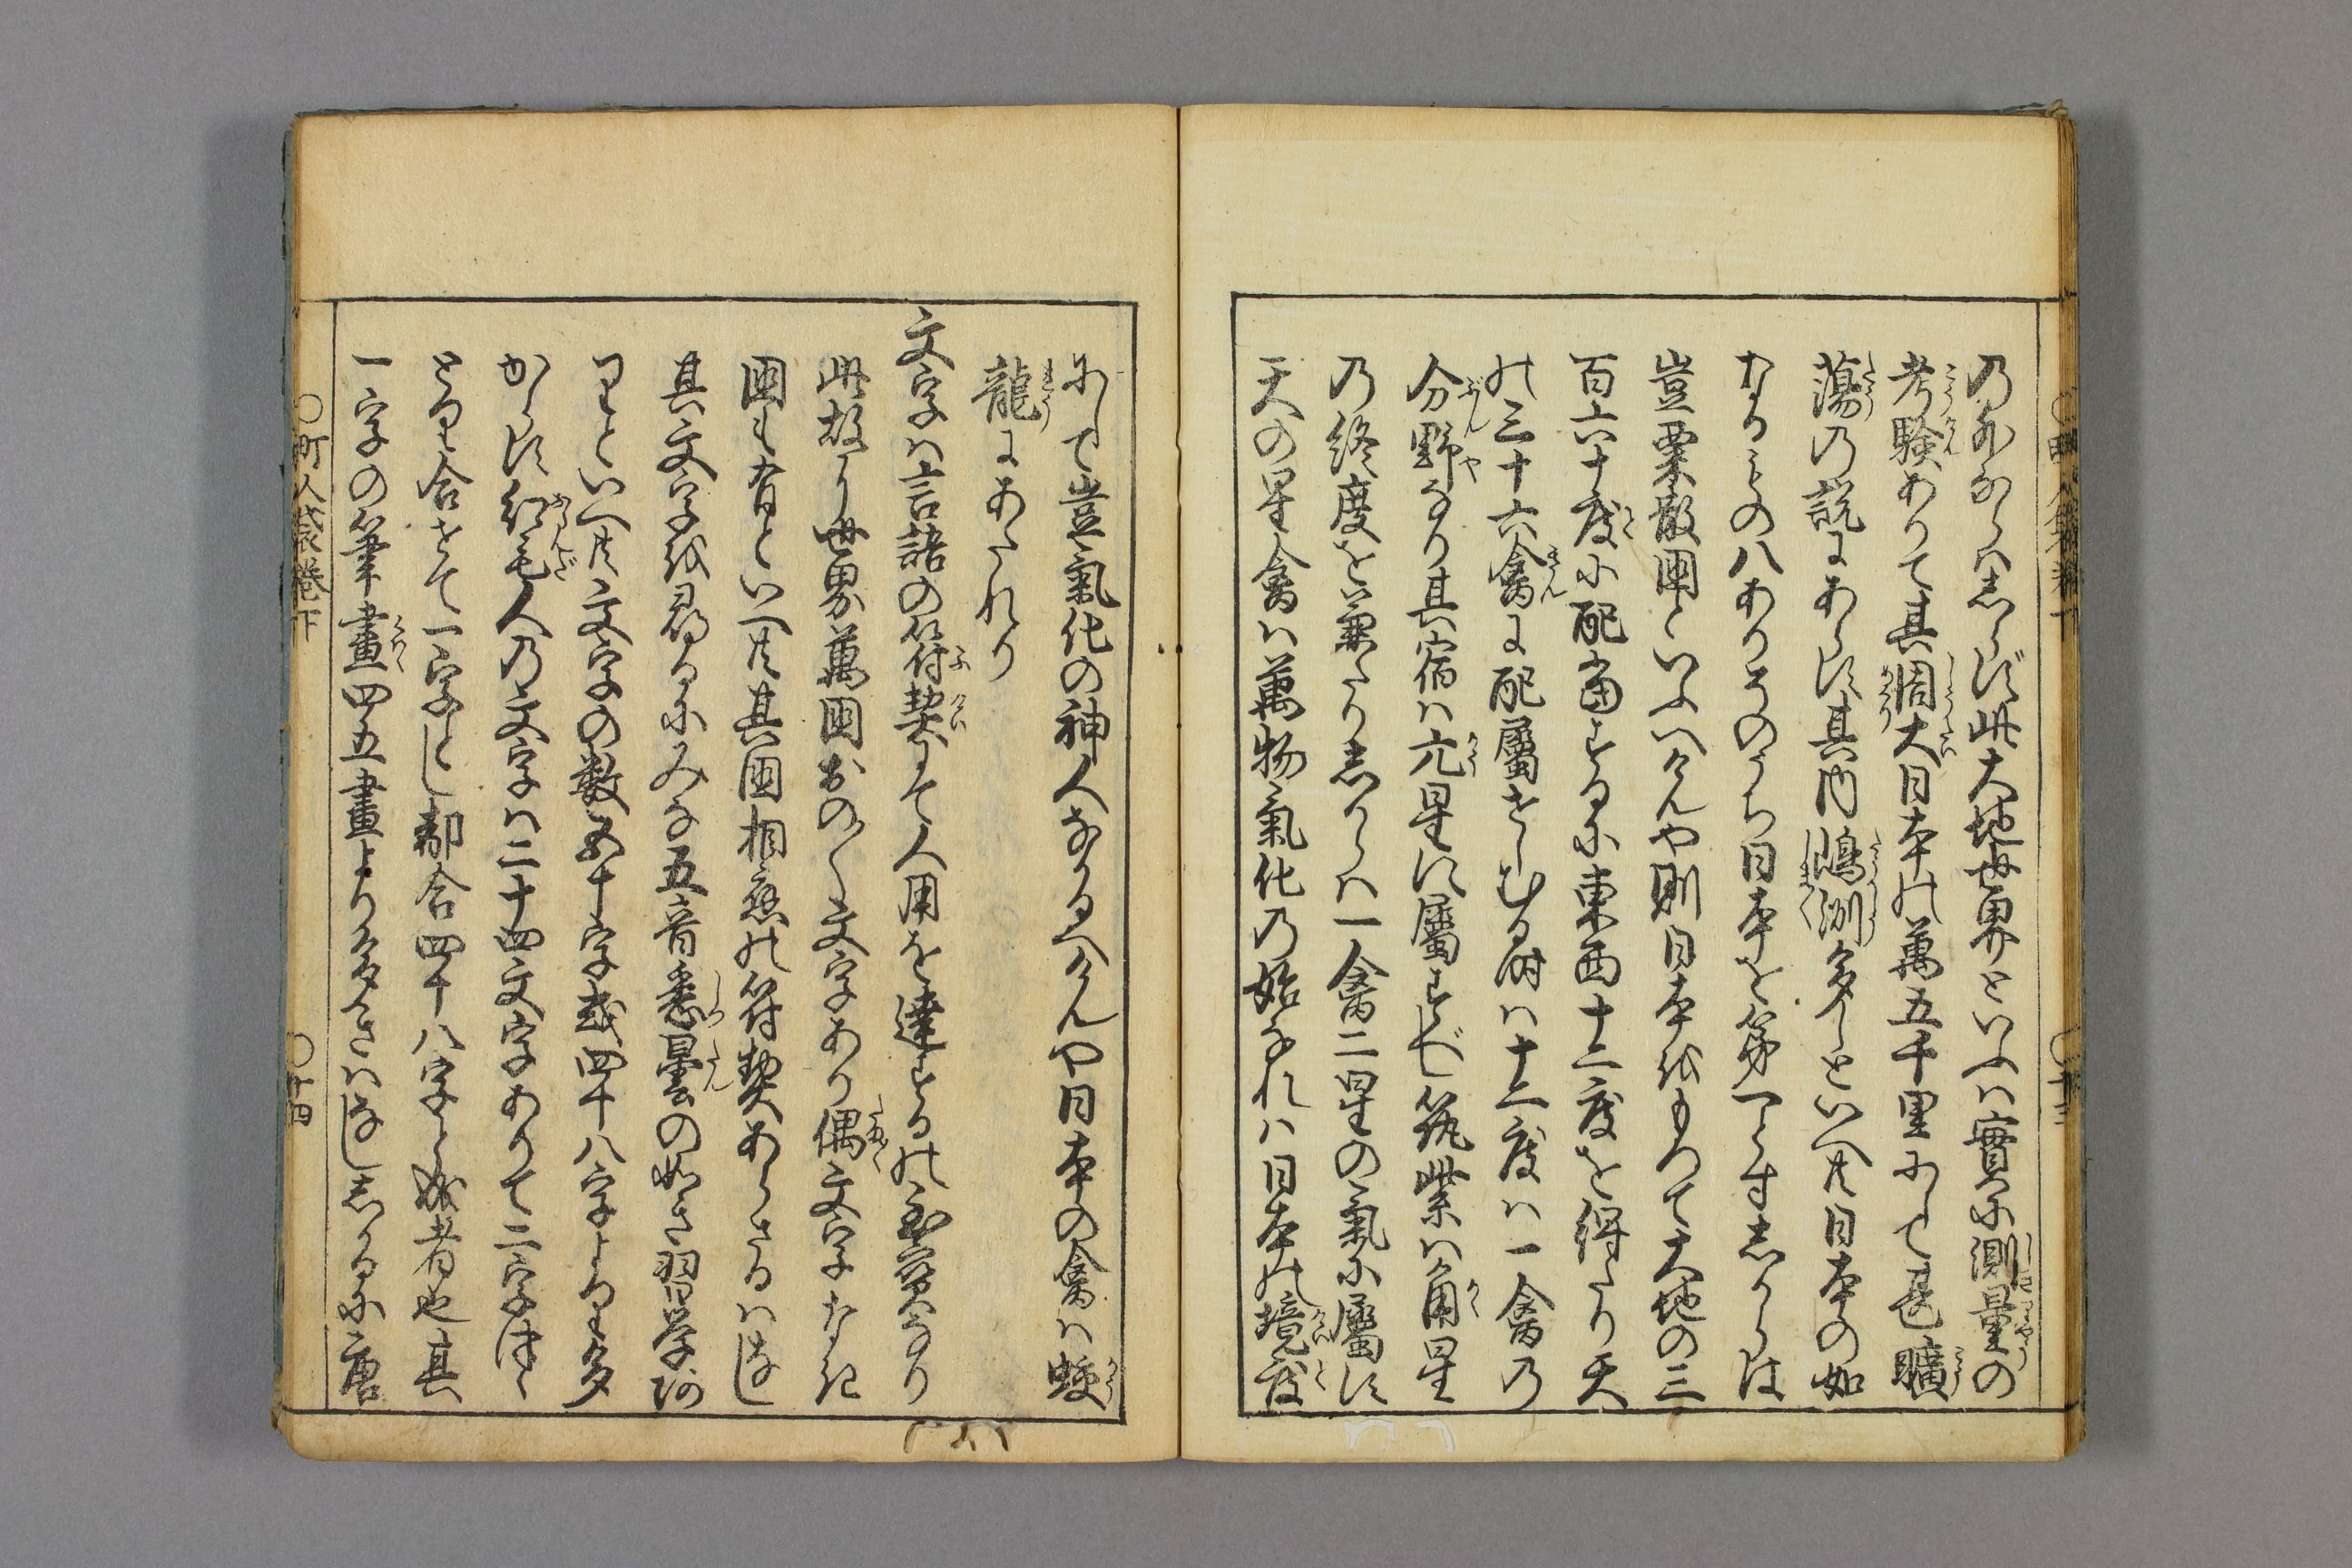 乃外ならハしらず此大地世界といふハ實に測量の
考験ありて其周大日本の萬五千里にして甚曠
蕩の説にあらず其内嶋洲多しといへ共日本の如
なるもの八ありそのうち日本を第一とす志からは
豈粟散国といふへけんや則日本をもつて天地の三
百六十度に配當するに東西十二度を得たり天
の三十六禽に配屬せしむる時ハ十二度ハ一禽の
分野なり其宿ハ亢星に屬すれど筑紫ハ角星
乃終度を兼たり志からハ一禽二星の氣に屬す
天の星禽ハ萬物氣化乃始なれハ日本の境度
にして豈氣化の神人なるへけんや日本の禽ハ蛟
龍にあたれり
文字ハ言語の符契にて人用を達するの至寶なり
此故に世界萬国おの〱文字あり偶文字なき
国も有といへ共其国相應の符契あらさるハなし
其文字を尋るにみな五音悉曇の如き習学あ
りといへ共文字の数五十字或四十八字より多
からず紅毛人乃文字ハ二十四文字ありて二字つゝ
とり合せて一字とし都合四十八字と成者也其
一字の筆畫四五畫より多きハなし志かるに唐
〇町人袋巻下
〇十四